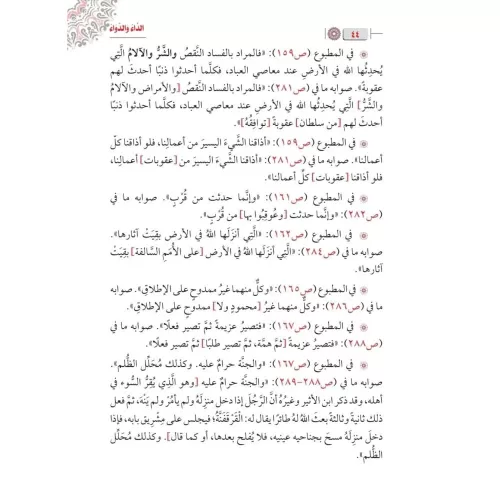 الداء والدواء
٤٤
في المطبوع (ص١٥٩): «فالمراد بالفساد النَّقصُ والشَّرُّ والآلامُ الَّتي
يُحدِثُها الله في الأرضِ عند معاصي العباد، فكلَّما أحدثوا ذنبًا أحدثَ لهم
عقوبةً». صوابه ما في (ص٢٨١): «فالمراد بالفساد النَّقصُ [والأمراض والآلامُ
والشَّرُّ] الَّتي يُحدِثُها الله في الأرضِ عند معاصي العباد، فكلَّما أحدثوا ذنبًا
أحدثَ لهم [من سلطانه] عقوبةً [توافِقُه]».
في المطبوع (ص١٥٩): «أذاقنا الشَّيءَ اليسيرَ من أعمالِنا، فلو أذاقنا كلَّ
أعمالنا». صوابه ما في (ص٢٨١): «أذاقنا الشَّيءَ اليسيرَ من [عقوبات] أعمالِنا،
فلو أذاقنا [عقوبات] كلِّ أعمالنا».
في المطبوع (ص١٦١): «وإنَّما حدثت من قُرْبٍ». صوابه ما في
(ص٢٨٢): «وإنَّما حدثت [وعُوقِبوا بها] من قُربٍ».
في المطبوع (ص١٦٢): «الَّتي أنزَلَها اللهُ في الأرض بقِيَتْ آثارها».
صوابه ما في (ص٢٨٤): «الَّتي أنزَلَها الله في الأرض [على الأُمَمِ السَّالفة] بقِيَتْ
آثارها».
في المطبوع (ص١٦٥): «وكلٌّ منهما غيرُ ممدوحٍ على الإطلاق». صوابه
ما في (ص٢٨٦): «وكلٌّ منهما غيرُ [محمودٍ ولا] ممدوحٍ على الإطلاق».
في المطبوع (ص١٦٧): «فتصيرُ عزيمةً ثمَّ تصير فعلًا». صوابه ما في
(ص٢٨٨): «فتصيرُ عزيمةً [ثمَّ همَّة، ثمَّ تصير طلبًا] ثمَّ تصير فعلًا».
في المطبوع (ص١٦٧): «والجنَّة حرامٌ عليه. وكذلك مُحَلِّل الظُّلم».
صوابه ما في (ص٢٨٨-٢٨٩): «والجنَّة حرام عليه [وهو الَّذي يُقِرُّ السُّوء في
أهله، وقد ذكر ابن الأثير وغيرُه أنَّ الرَّجُلَ إذا دخل منزلَه ولم يأمُرْ ولم يَنْهَ، ثمَّ فعل
ذلك ثانيةً وثالثةً بعثَ اللهُ له طائرًا يقال له: القَرْقَفَنَّةُ؛ فيجلس على مِشْريق بابه، فإذا
دخل منزِلَهُ مسحَ بجناحيه عينيه، فلا يُفلح بعدها، أو كما قال]. وكذلك مُحَلِّل
الظُّلم».